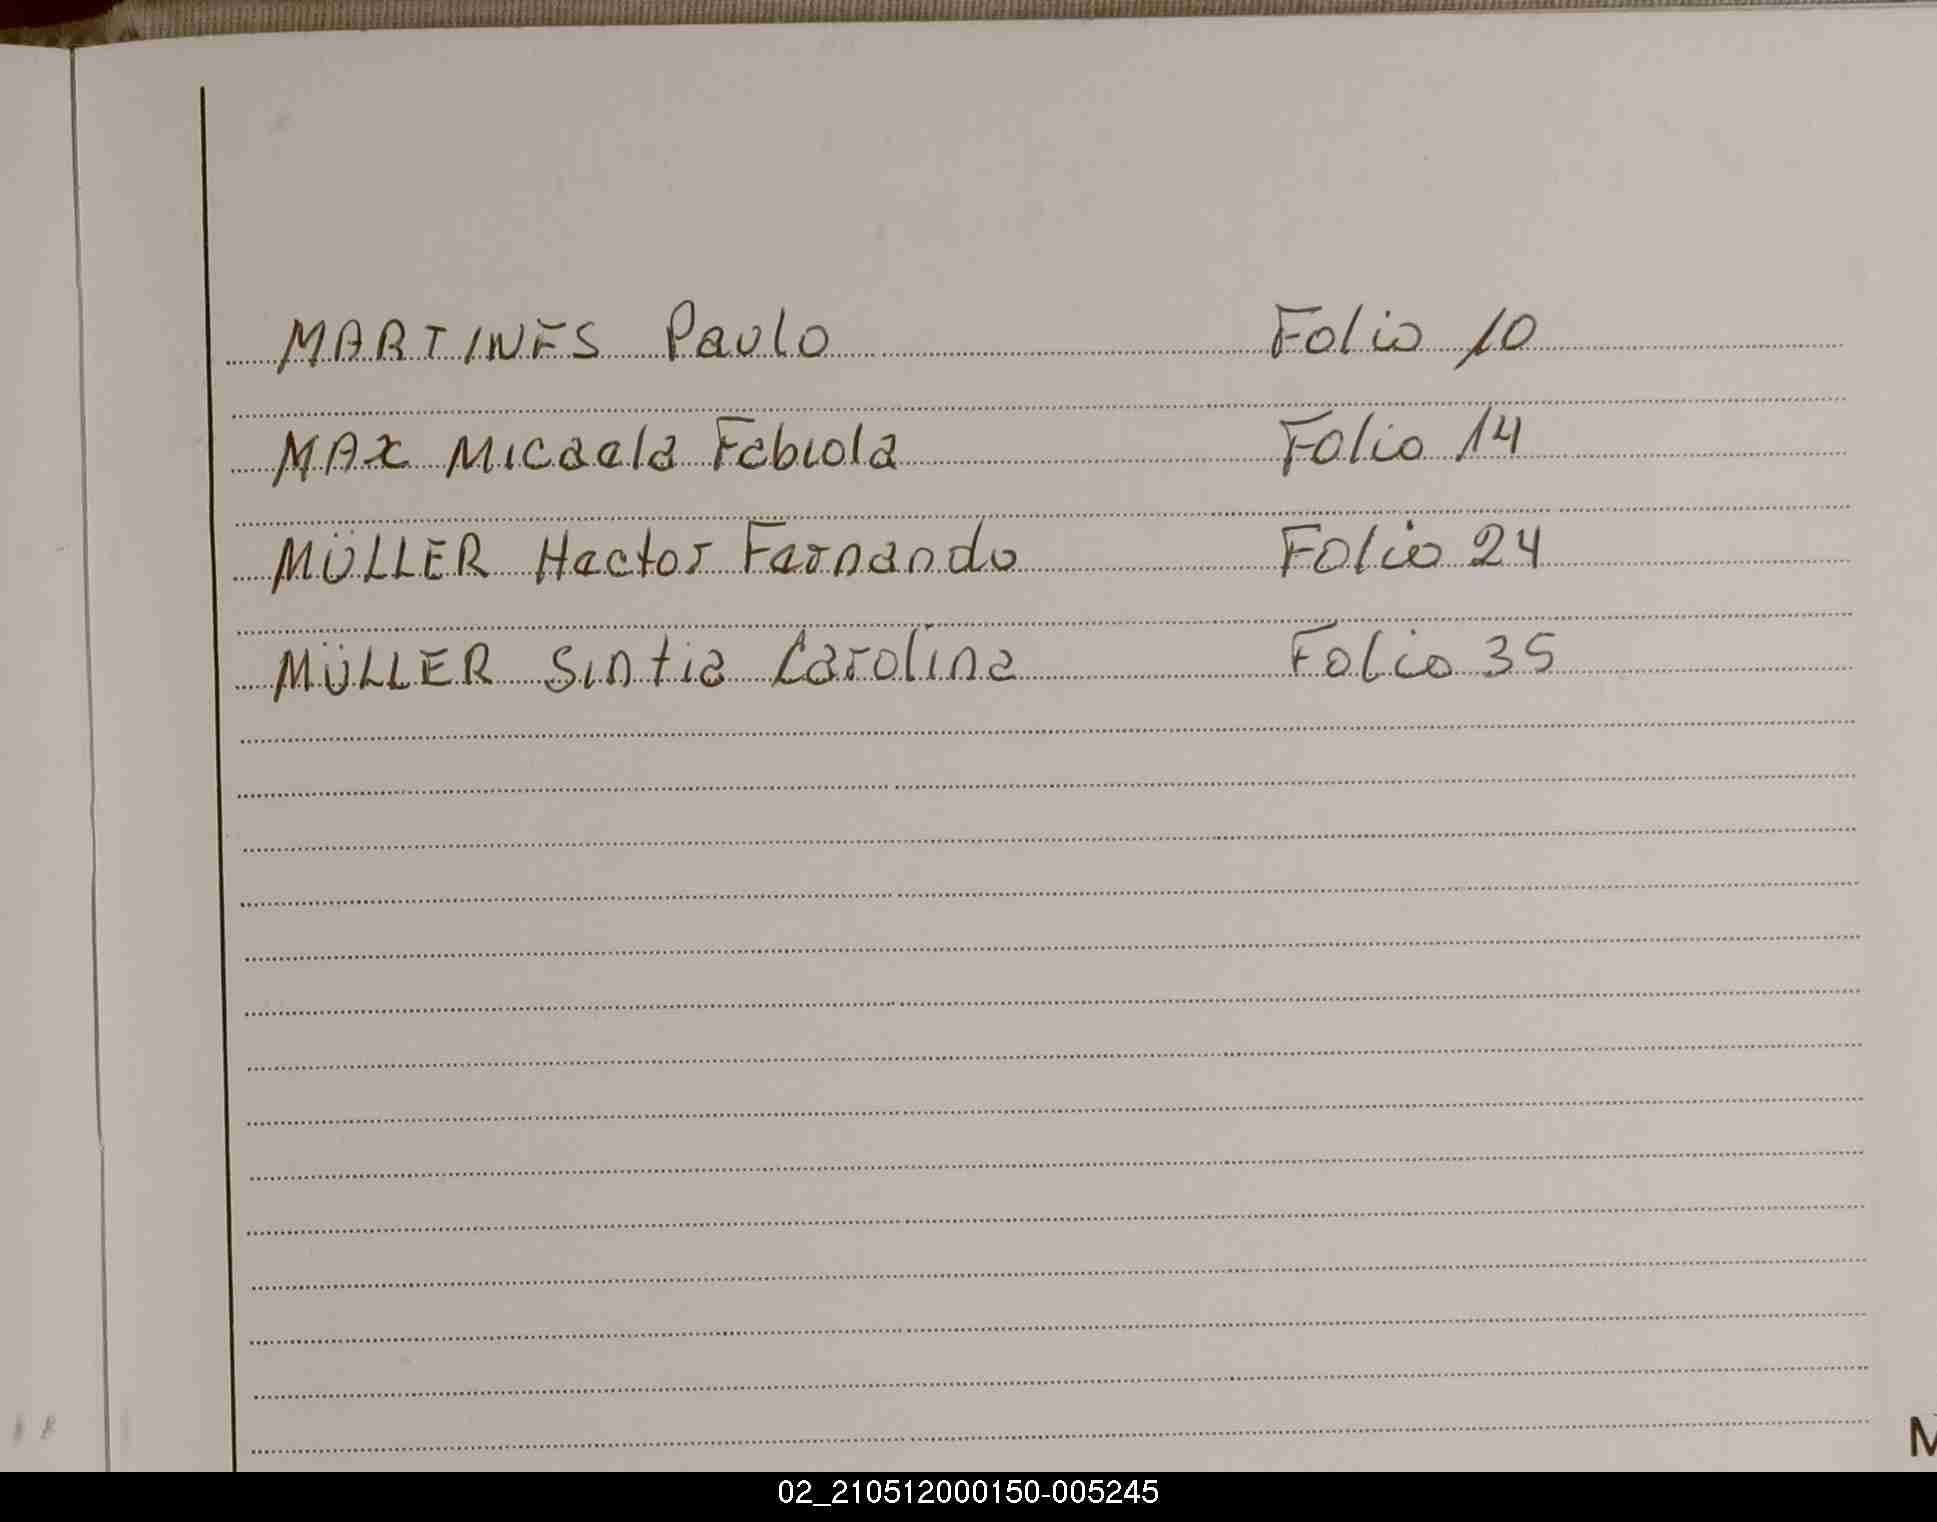 MARTINES Paulo Folio 10
MAX Micaela Fabiola Folio 14
MÜLLER Hector Fernando Folio 24
MÜLLER Sintia Carolina Folio 35
M
02_210512000150-005245